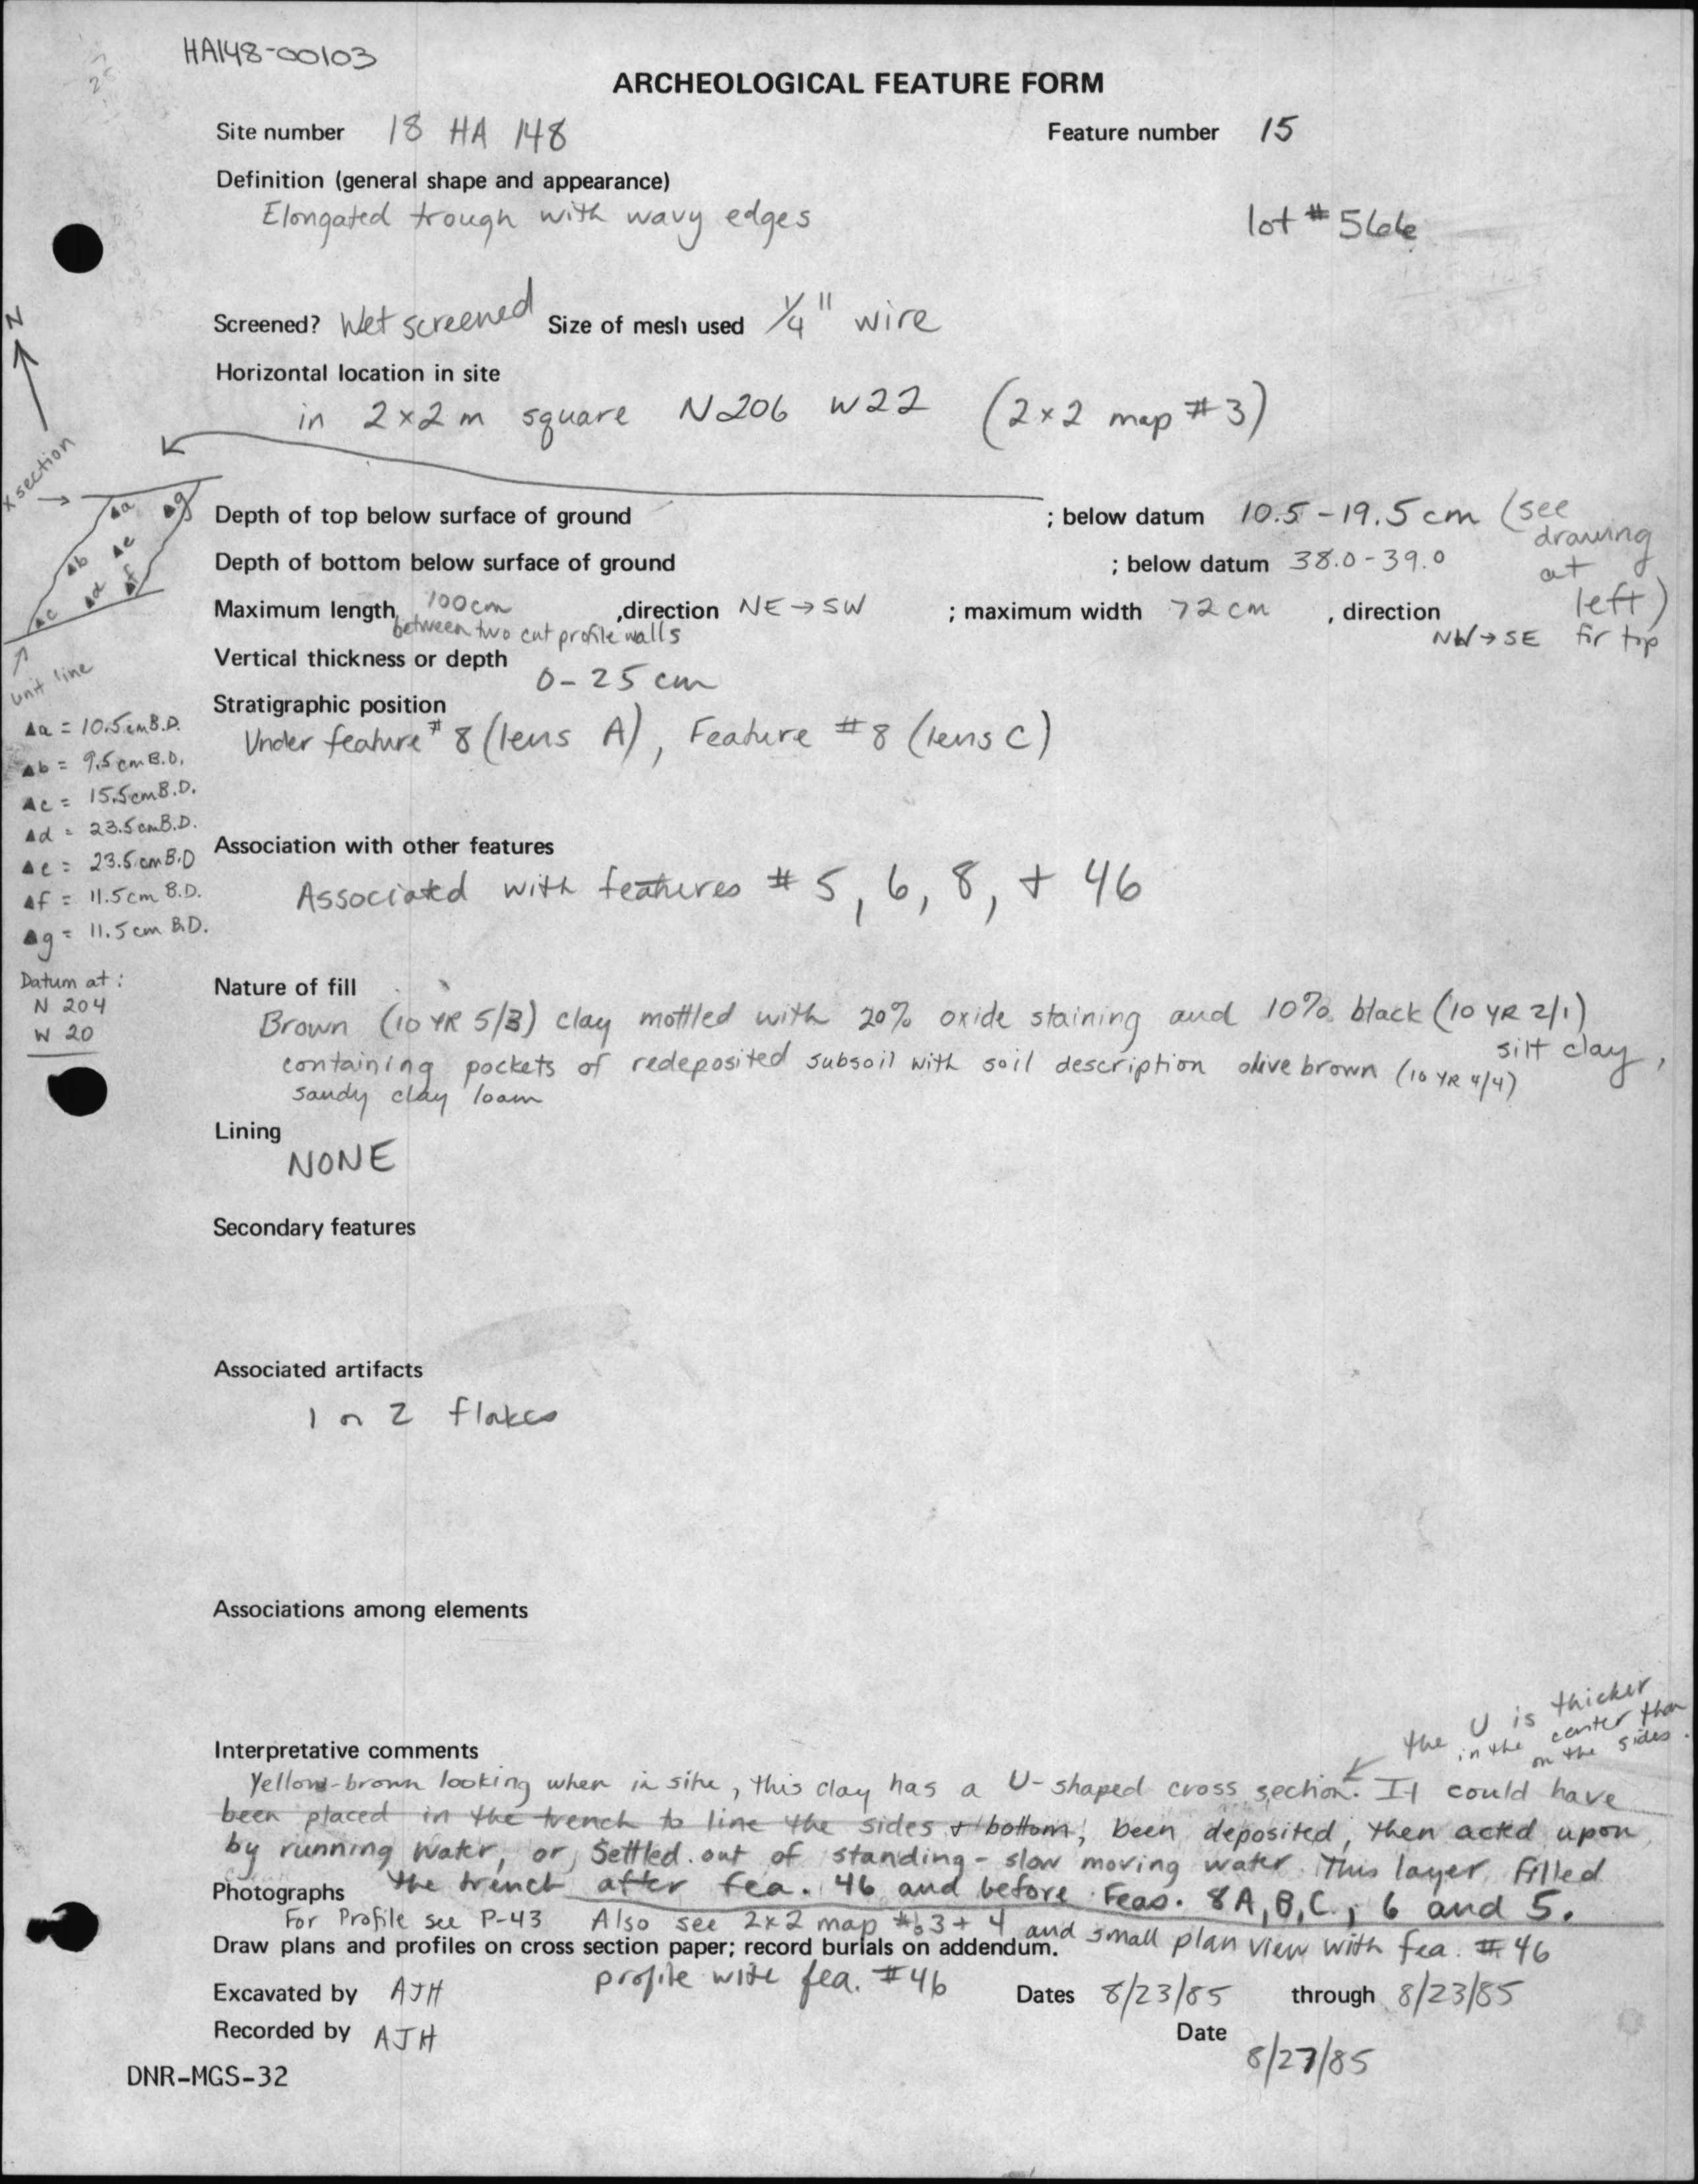 HA148-00103
ARCHEOLOGICAL FEATURE FORM
Site number 18 HA 148 Feature number 15
Definition (general shape and appearance)
Elongated trough with wavy edges
lot # 566
Screened? Wet screened Size of mesh used 1/4" wire
Horizontal location in site
in 2x2 m square N206 W22 (2x2 map #3)
N
X section
Δa Δg
Δb Δe
Δc Δd Δf
unit line
Depth of top below surface of ground ; below datum 10.5-19.5 cm (see drawing at left)
Depth of bottom below surface of ground ; below datum 38.0-39.0
Maximum length 100cm between two cut profile walls ,direction NE→SW ; maximum width 72 cm , direction NW→SE for top
Vertical thickness or depth
0-25 cm
Stratigraphic position
Under feature #8 (lens A), Feature #8 (lens C)
Δa = 10.5cmB.D.
Δb = 9.5cmB.D.
Δc = 15.5cmB.D.
Δd = 23.5cmB.D.
Δe = 23.5cmB.D
Δf = 11.5cm B.D.
Δg = 11.5cm B.D.
Datum at:
N 204
W 20
Association with other features
Associated with features # 5, 6, 8, + 46
Nature of fill
Brown (10 YR 5/3) clay mottled with 20% oxide staining and 10% black (10 YR 2/1) silt clay,
containing pockets of redeposited subsoil with soil description olive brown (10 YR 4/4)
sandy clay loam
Lining
NONE
Secondary features
Associated artifacts
1 or 2 flakes
Associations among elements
the U is thicker
in the center than
on the sides.
Interpretative comments
Yellow-brown looking when in situ, this clay has a U-shaped cross section. It could have
been placed in the trench to line the sides + bottom, been deposited, then acted upon
by running water, or settled out of standing - slow moving water. This layer filled
the trench after fea. 46 and before Feas. 8A,B,C, 6 and 5.
Photographs
For Profile see P-43 Also see 2x2 map #s 3+4 and small plan view with fea. #46
Draw plans and profiles on cross section paper; record burials on addendum.
profile with fea. #46
Excavated by AJH Dates 8/23/85 through 8/23/85
Recorded by AJH Date 8/27/85
DNR-MGS-32